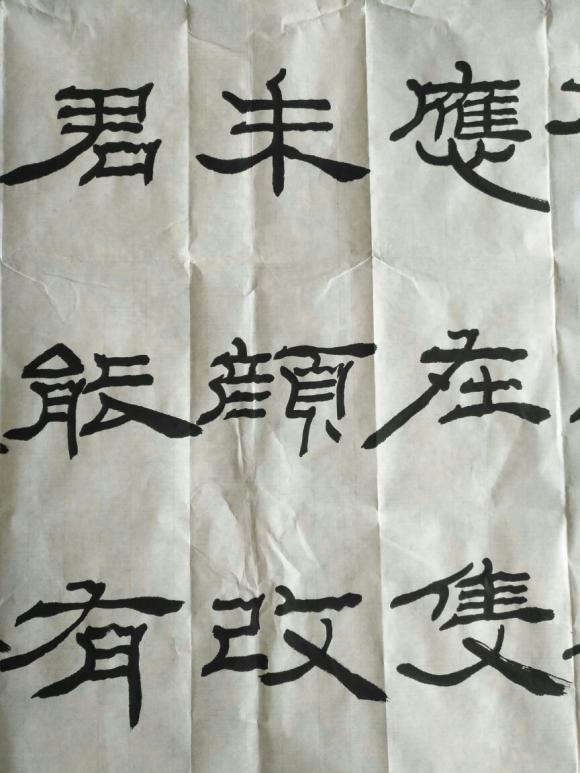 應在隻
朱顏改
君能有